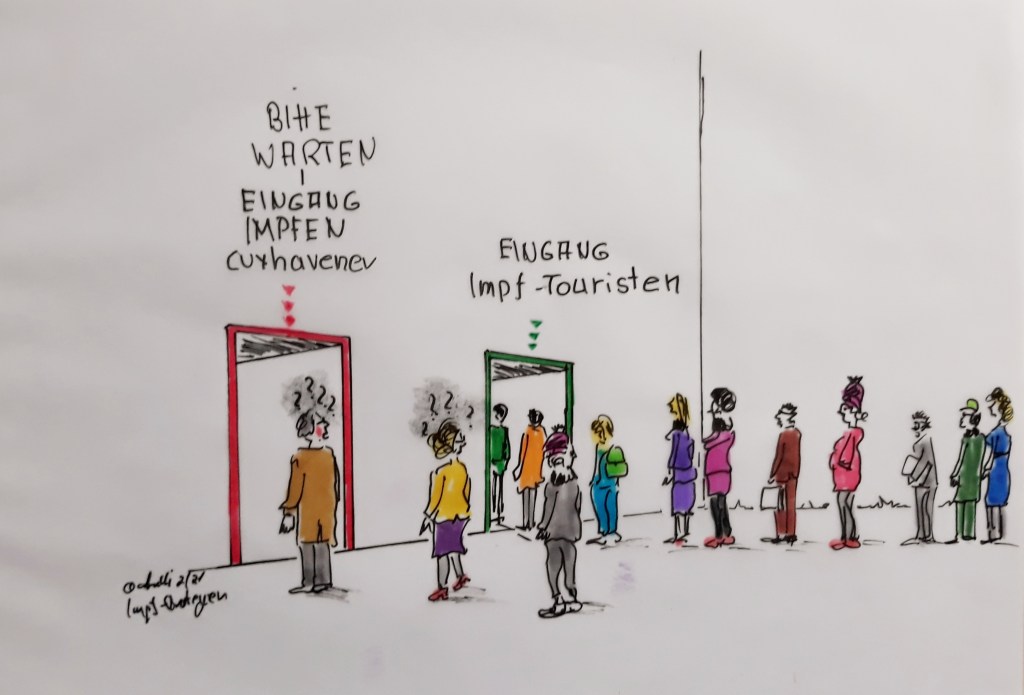 BITTE
WARTEN
EINGANG
IMPFEN
Cuxhavener
EINGANG
Impf-Touristen
? ? ? ?
? ? ? ?
2/21
Impf-